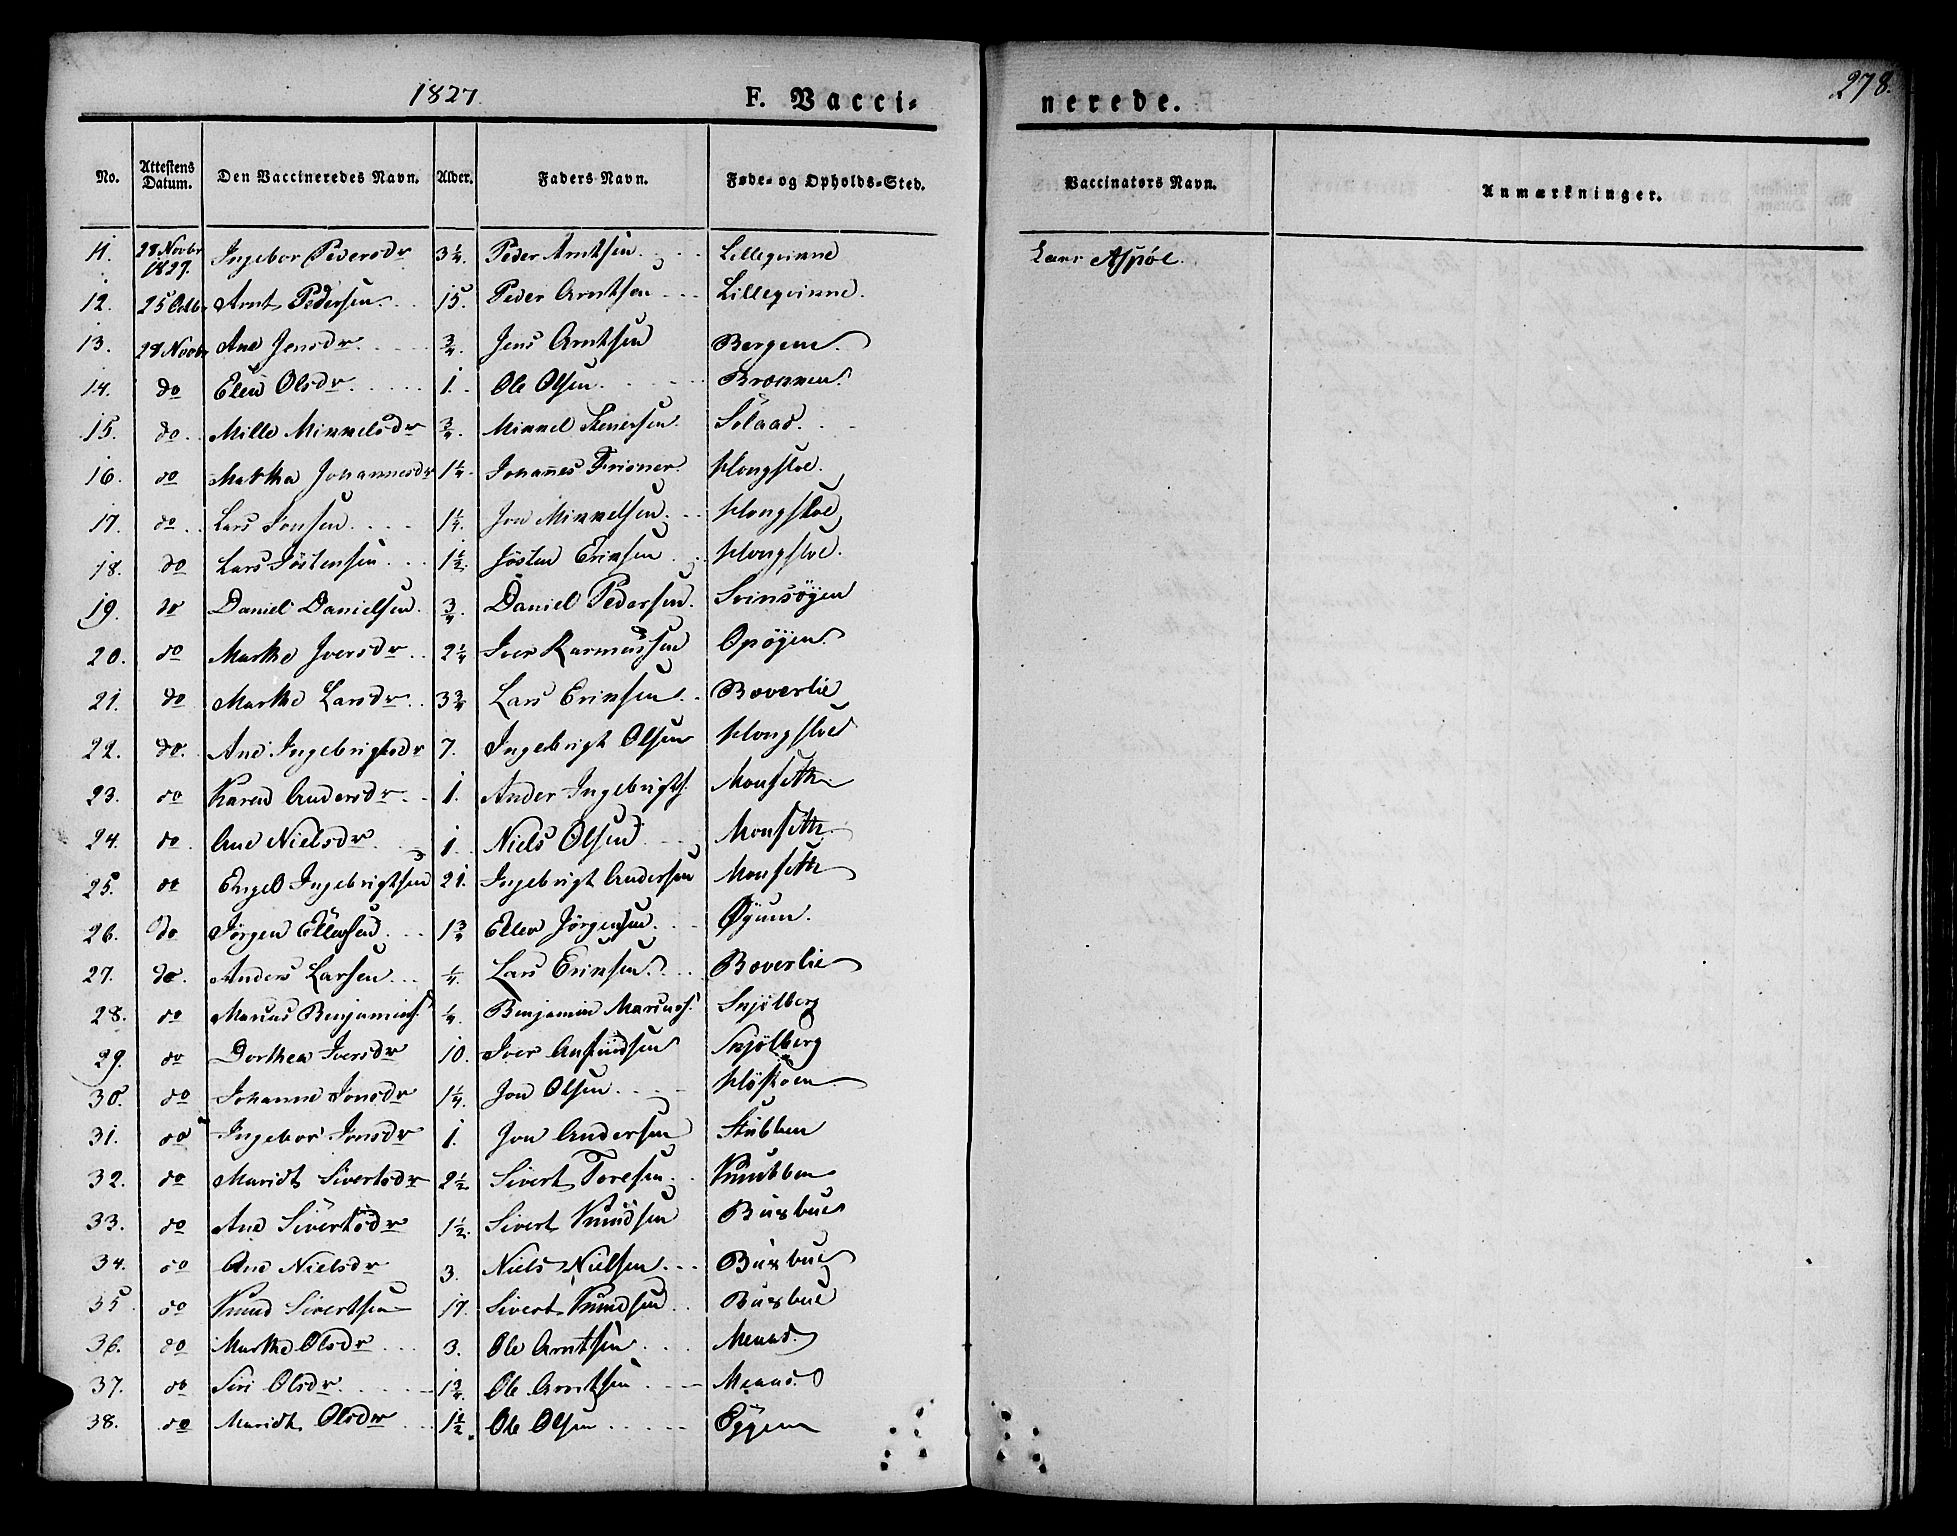 1827.
F. Vacci-
nerede.
278.
No.
Attestens Datum.
Den Vaccineredes Navn.
Alder.
Faders Navn.
Føde- og Opholds-Sted.
Vaccinators Navn.
Anmærkninger.
11. 28 Novbr 1827. Ingebor Pedersdr 3 1/4 Peder Arntsen Lillegvinne Lars Aspøe.
12. 25 Octbr Arnt Pedersen 15. Peder Arntsen Lillegvinne.
13. 28 Novbr Ane Jensdr. 3/4. Jens Arntsen Bergem.
14. do Elen Olsdr. 1. Ole Olsen. Brønnen.
15. do. Mille Mikkelsdr 3/4. Mikkel Stenersen Solaas.
16. do Marthe Johannesdr 1 1/4. Johannes Frisner. Klongsloe.
17. do Lars Jonsen. 1 1/4. Jon Mikkelsen. Klongsloe
18. do Lars Jöstensen 1 1/2. Jösten Eriksen Klongsloe.
19. do Daniel Danielsen. 3/4. Daniel Pedersen. Svinsøyen
20. do Marthe Iversdr 2 1/4 Iver Rasmussen Opøyen.
21. do Marthe Larsdr. 3 3/4 Lars Eriksen. Boverlie
22. do. Ane Ingebrigtsdr 7. Ingebrigt Olsen Klongsloe
23. do Karen Andersdr. 1. Ander Ingebrigts. Monseth.
24. do. Ane Nielsdr. 1. Niels Olsen Monseth.
25. do Engel Ingebrigtsen 21. Ingebrigt Andersen Monseth
26. do Jørgen Ellevsen 1 3/4 Ellev Jørgensen. Øyum.
27. do. Anders Larsen 1/4 Lars Eriksen. Boverlie
28. do Marcus Benjamins. 1/4. Benjamin Marcus. Snjølberg
29. do Dorthea Iversdr 10. Iver Anfindsen Snjølberg
30. do Johanne Jonsdr 1 1/4. Jon Olsen.
31. do Ingebor Jonsdr 1. Jon Andersen Stubben
32. do Maridt Sivertsdr 2 1/2. Sivert Toresen. Knubben
33. do Ane Sivertsdr 1 1/2. Sivert Knudsen Busbue
34. do Ane Nielsdr 3. Niels Nielsen. Busbue
35. do Knud Sivertsen 17. Sivert Knudsen Busbue
36. do Marthe Olsdr 3. Ole Arntsen Meaas.
37. do Siri Olsdr. 1 3/4. Ole Arntsen Meaas.
38. do Maridt Olsdr 1 1/2. Ole Olsen Eggen